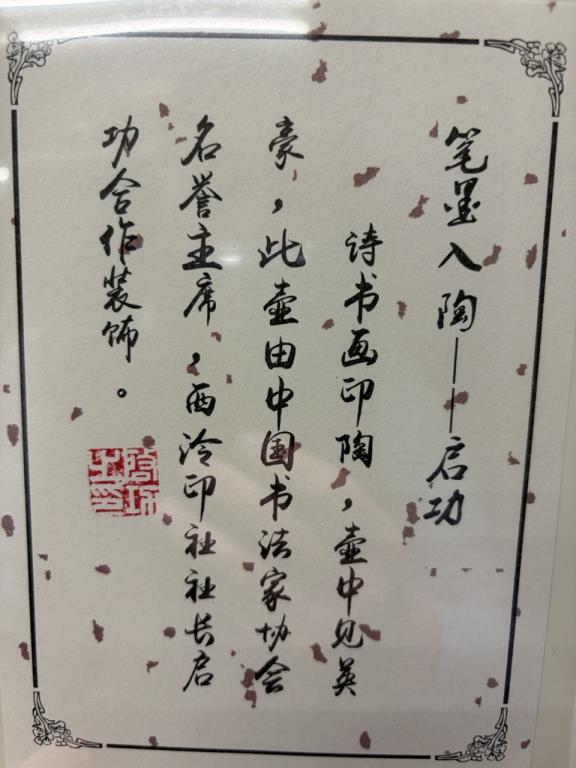 笔墨入陶——启功
诗书画印陶，壶中见英
豪，此壶由中国书法家协会
名誉主席，西泠印社社长启
功合作装饰。
启功之印